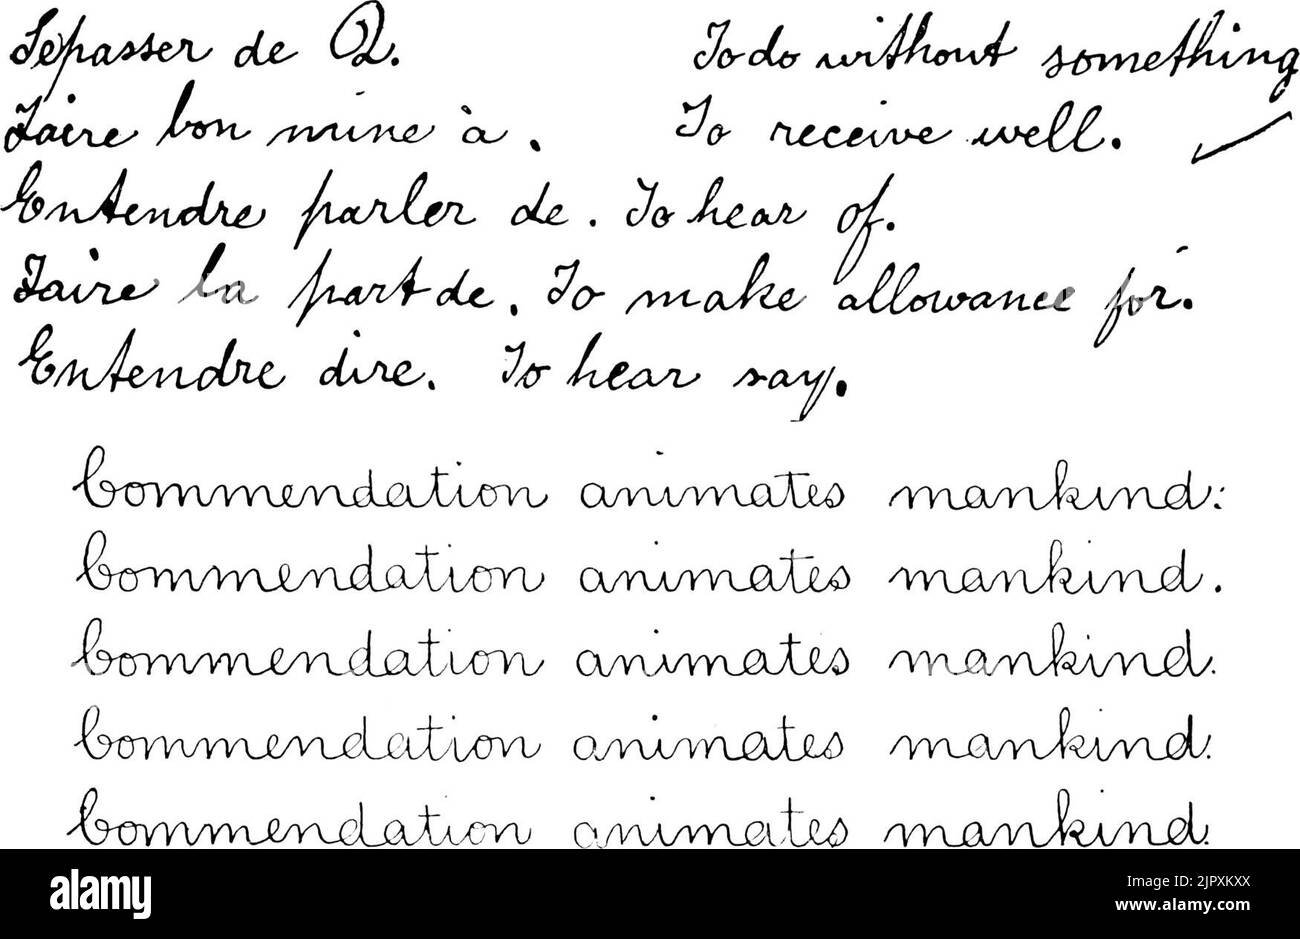 Se passer de Q. To do without something
Faire bon mine à. To receive well.
Entendre parler de. To hear of.
Faire la part de. To make allowance for.
Entendre dire. To hear say.
Commendation animates mankind:
Commendation animates mankind.
Commendation animates mankind.
Commendation animates mankind.
Commendation animates mankind.
alamy
Image ID: 2JPXKXX
www.alamy.com